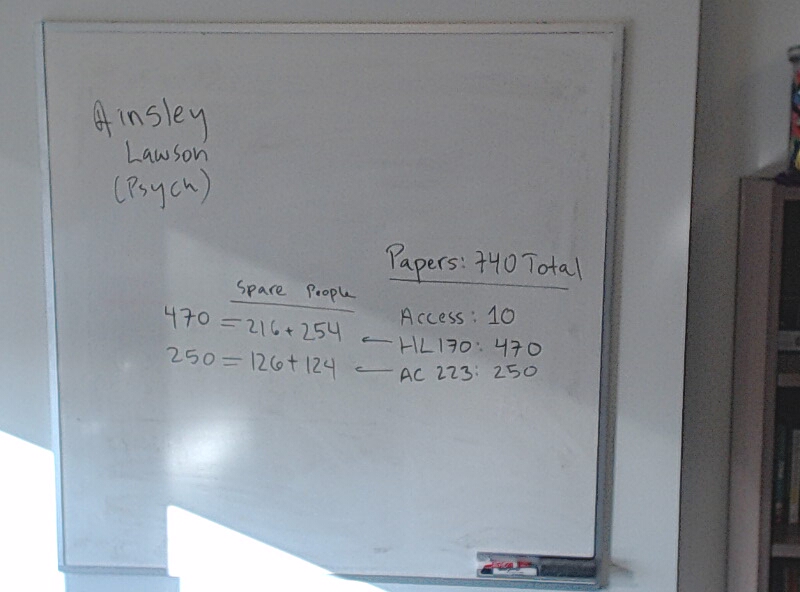 Ainsley
Lawson
(Psych)
Papers: 740 Total
Spare People
Access: 10
470 = 216 + 254 ← HL 170: 470
250 = 126 + 124 ← AC 223: 250